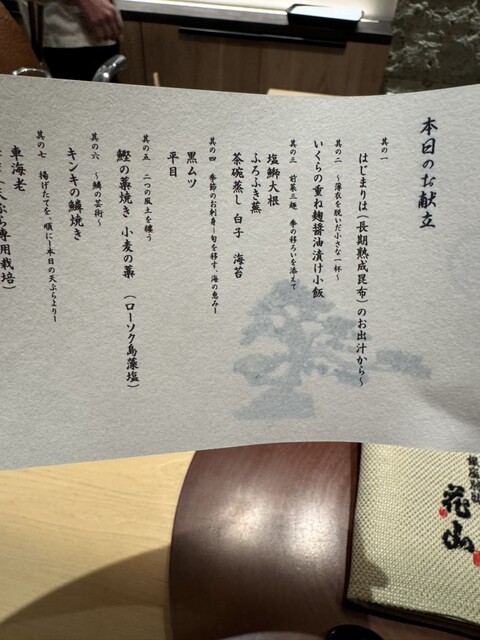 本日のお献立
其の一
はじまりは(長期熟成昆布)のお出汁から~
其の二 ~薄衣を脱いだ小さな一杯~
いくらの重ね麹醤油漬け小飯
其の三 前菜三種 季の移ろいを添えて
塩鰤大根
ふろふき蕪
茶碗蒸し 白子 海苔
其の四 季節のお刺身ー旬を移す、海の恵みー
黒ムツ
平目
其の五 二つの風土を纏う
鰹の藁焼き 小麦の藁 (ローソク島藻塩)
其の六 ~鱗の芸術~
キンキの鱗焼き
其の七 揚げたてを、順にー本日の天ぷらよりー
車海老
専用栽培)
花山